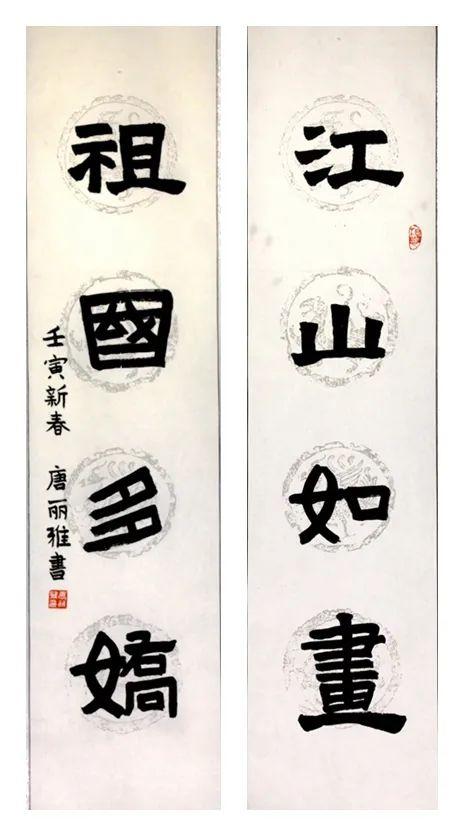 江山如畫
祖國多嬌
壬寅新春 唐丽雅書